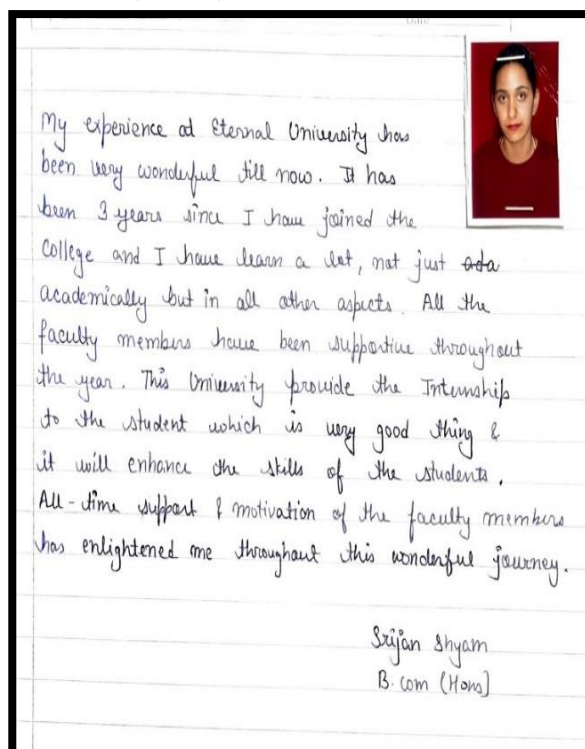 My experience at Eternal University has
been very wonderful till now. It has
been 3 years since I have joined the
College and I have learn a lot, not just ada
academically but in all other aspects. All the
faculty members have been supportive throughout
the year. This University provide the Internship
to the student which is very good thing &
it will enhance the skills of the students.
All-time support & motivation of the faculty members
has enlightened me throughout this wonderful journey.
Srijan Shyam
B.com (Hons)